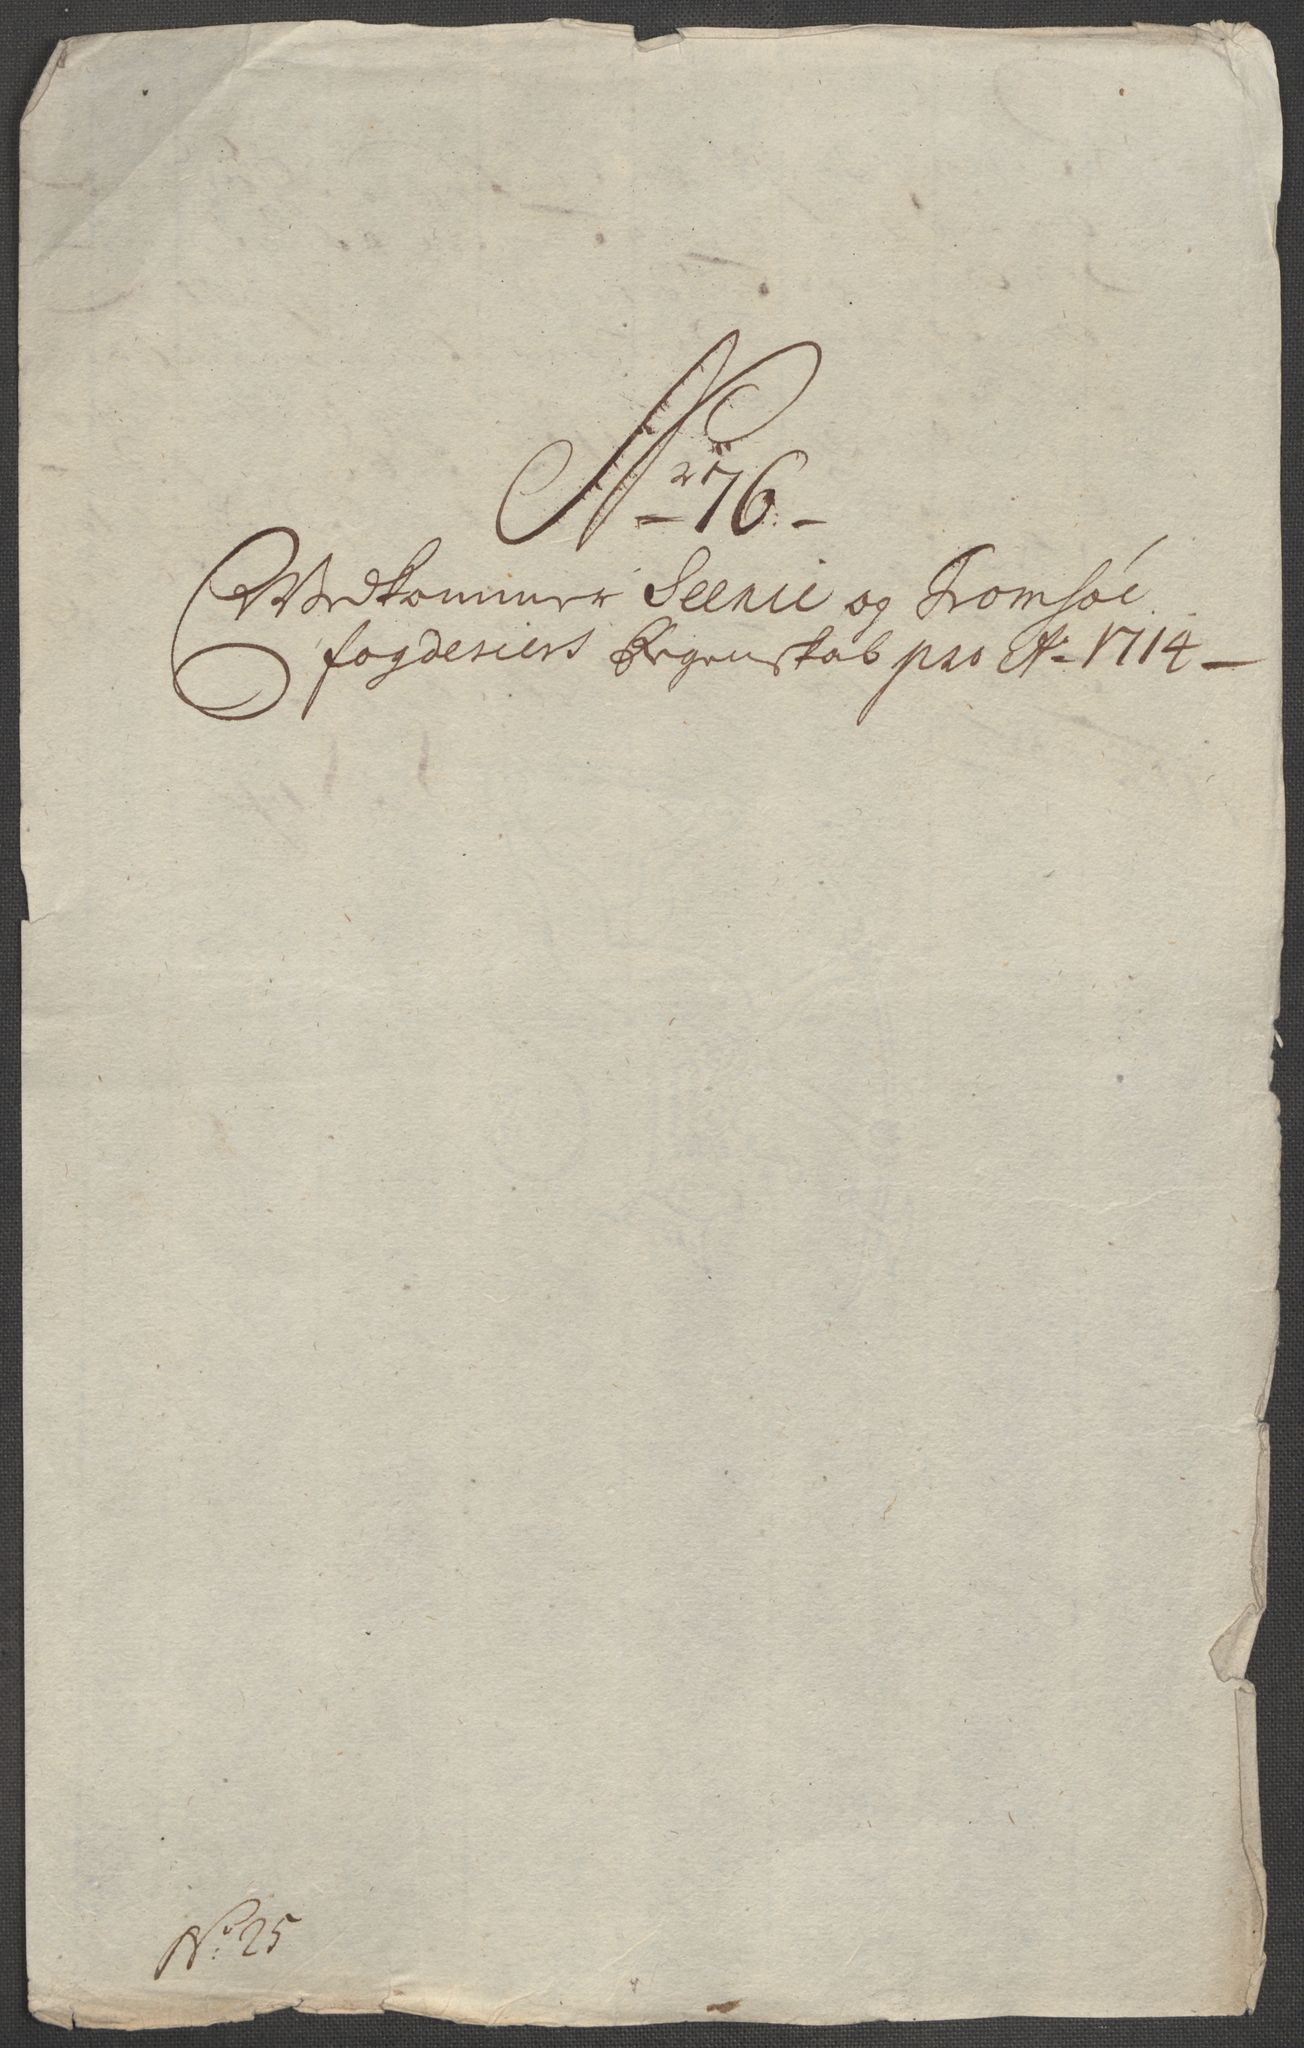 No 76.
Vedkommer Seenie og Tromsøe
fogderiers Regenskab pro Ao 1714
No: 25